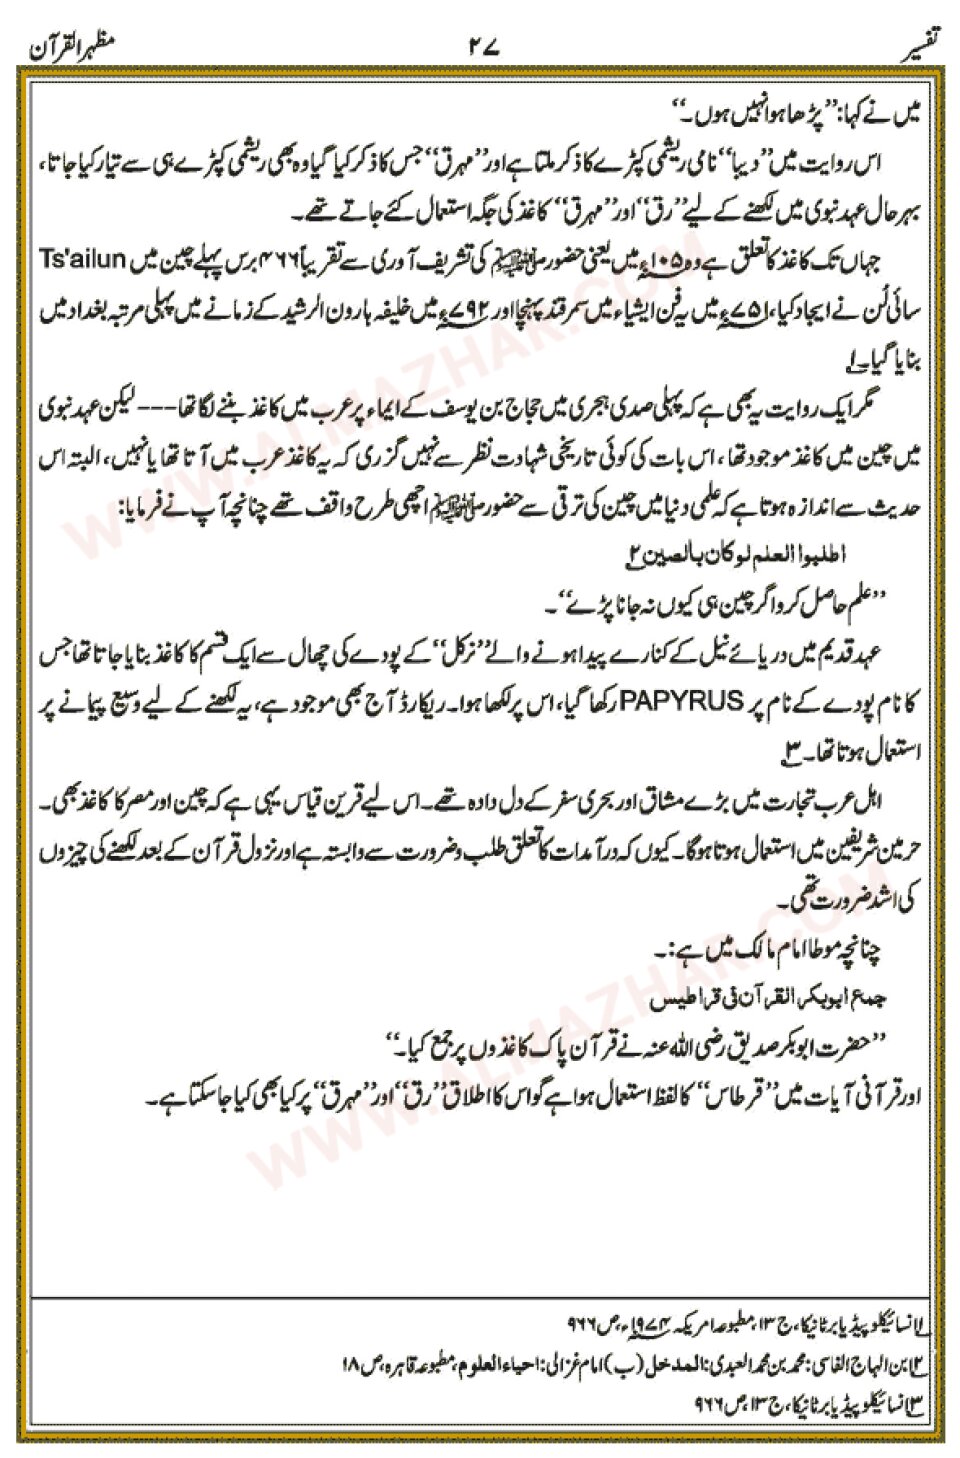 تفسیر ۲۷ مظہر القرآن
میں نے کہا: ’’پڑھا ہوا نہیں ہوں۔‘‘
اس روایت میں ’’دیبا‘‘ نامی ریشمی کپڑے کا ذکر ملتا ہے اور ’’مہرق‘‘ جس کا ذکر کیا گیا وہ بھی ریشمی کپڑے ہی سے تیار کیا جاتا،
بہر حال عہد نبوی میں لکھنے کے لیے ’’رق‘‘ اور ’’مہرق‘‘ کاغذ کی جگہ استعمال کئے جاتے تھے۔
جہاں تک کاغذ کا تعلق ہے وہ ۱۰۵ء میں یعنی حضور ﷺ کی تشریف آوری سے تقریباً ۴۶۶ برس پہلے چین میں Ts'ailun
سائی لُن نے ایجاد کیا، ۷۵۱ء میں یہ فن ایشیاء میں سمرقند پہنچا اور ۷۹۲ء میں خلیفہ ہارون الرشید کے زمانے میں پہلی مرتبہ بغداد میں
بنایا گیا۔ ۱
مگر ایک روایت یہ بھی ہے کہ پہلی صدی ہجری میں حجاج بن یوسف کے ایماء پر عرب میں کاغذ بننے لگا تھا ---- لیکن عہد نبوی
میں چین میں کاغذ موجود تھا، اس بات کی کوئی تاریخی شہادت نظر سے نہیں گزری کہ یہ کاغذ عرب میں آتا تھا یا نہیں، البتہ اس
حدیث سے اندازہ ہوتا ہے کہ علمی دنیا میں چین کی ترقی سے حضور ﷺ اچھی طرح واقف تھے چنانچہ آپ نے فرمایا:
اطلبوا العلم لو کان بالصین ۲
’’علم حاصل کرو اگر چین ہی کیوں نہ جانا پڑے‘‘۔
عہد قدیم میں دریائے نیل کے کنارے پیدا ہونے والے ’’نرکل‘‘ کے پودے کی چھال سے ایک قسم کا کاغذ بنایا جاتا تھا جس
کا نام پودے کے نام پر PAPYRUS رکھا گیا، اس پر لکھا ہوا۔ ریکارڈ آج بھی موجود ہے، یہ لکھنے کے لیے وسیع پیمانے پر
استعمال ہوتا تھا۔ ۳
اہل عرب تجارت میں بڑے مشاق اور بحری سفر کے دل دادہ تھے۔ اس لیے قرین قیاس یہی ہے کہ چین اور مصر کا کاغذ بھی۔
حرمین شریفین میں استعمال ہوتا ہوگا۔ کیوں کہ درآمدات کا تعلق طلب و ضرورت سے وابستہ ہے اور نزول قرآن کے بعد لکھنے کی چیزوں
کی اشد ضرورت تھی۔
چنانچہ موطا امام مالک میں ہے:۔
جمع ابوبکر القرآن فی قراطیس
’’حضرت ابوبکر صدیق رضی اللہ عنہ نے قرآن پاک کاغذوں پر جمع کیا۔‘‘
اور قرآنی آیات میں ’’قرطاس‘‘ کا لفظ استعمال ہوا ہے گو اس کا اطلاق ’’رق‘‘ اور ’’مہرق‘‘ پر کیا بھی کیا جاسکتا ہے۔
WWW.ALMAZHAR.COM
WWW.ALMAZHAR.COM
۱ انسائیکلو پیڈیا برٹانیکا، ج ۱۳، مطبوعہ امریکہ ۱۹۷۴ء، ص ۹۶۶
۲ ابن الہاج الفاسی: محمد بن محمد العبدی: المدخل (ب) امام غزالی: احیاء العلوم، مطبوعہ قاہرہ، ص ۱۸
۳ انسائیکلو پیڈیا برٹانیکا، ج ۱۳، ص ۹۶۶